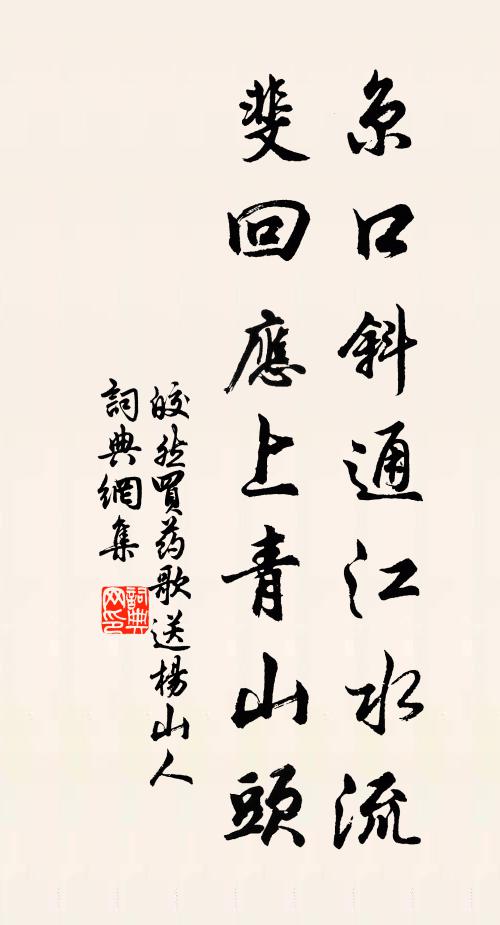 京口斜通江水流
斐回應上青山頭
皎然買药歌送楊山人
詞典網集
詞典
网印